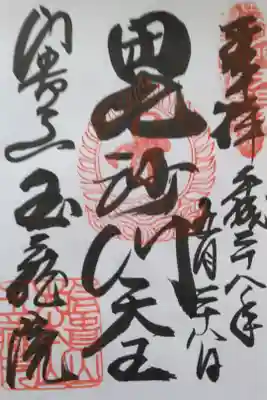 奉拝
平成二十八年
月二十八日
毘沙門天王
信貴山 玉蔵院